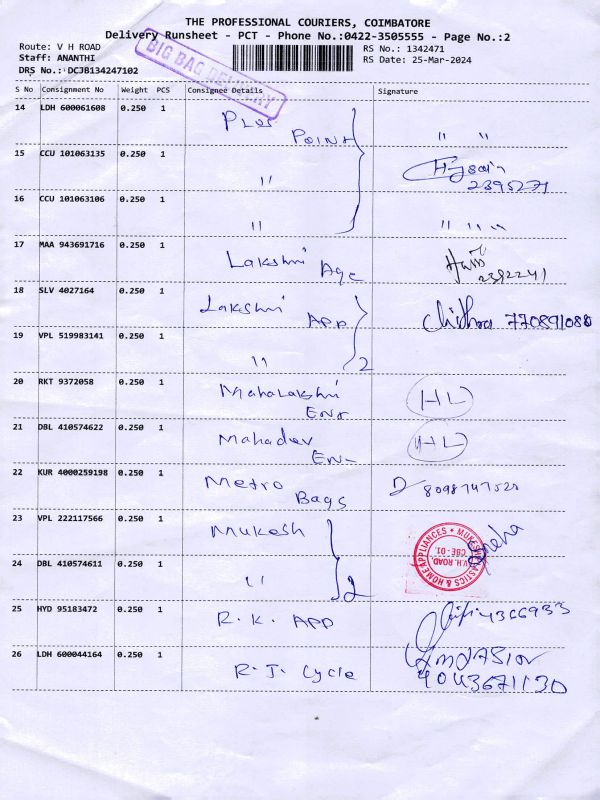 THE PROFESSIONAL COURIERS, COIMBATORE
Delivery Runsheet - PCT - Phone No.:0422-3505555 - Page No.:2
Route: V H ROAD
RS No.: 1342471
Staff: ANANTHI
RS Date: 25-Mar-2024
DRS No.: DCJB134247102
BIG BAG DELIVERY
S No Consignment No Weight PCS Consignee Details Signature
14 LDH 600061608 0.250 1 Plus Point " "
15 CCU 101063135 0.250 1 " 2395271
16 CCU 101063106 0.250 1 " " " "
17 MAA 943691716 0.250 1 Lakshmi Age 2392241
18 SLV 4027164 0.250 1 Lakshmi App Chithra 770891088
19 VPL 519983141 0.250 1 " 2
20 RKT 9372058 0.250 1 Mahalakshmi Enr HL
21 DBL 410574622 0.250 1 Mahadev En- HL
22 KUR 4000259198 0.250 1 Metro Bags
23 VPL 222117566 0.250 1 Mukesh Sneha
24 DBL 410574611 0.250 1 " 2
MUKESH PLASTICS & HOME APPLIANCES
V.H. ROAD,
CBE - 01.
25 HYD 95183472 0.250 1 R.K. APP 4366933
26 LDH 600044164 0.250 1 R.J. Cycle